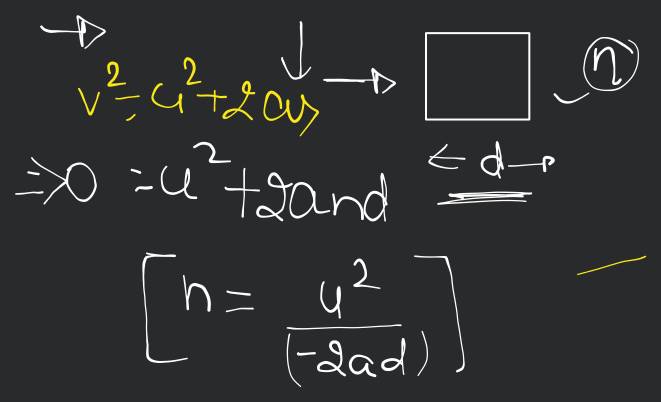 v²=u²+2as
n
⇒0=u²+2and
←d→
[n= u²/(-2ad)]